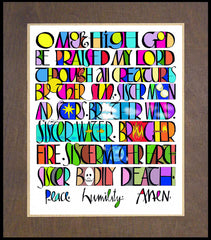 O MOST HIGH GOD
BE PRAISED MY LORD
THROUGH ALL CREATURES
BROTHER SUN. SISTER MOON
AND STARS. BROTHER WIND
SISTER WATER. BROTHER
FIRE. SISTER MOTHER EARTH
SISTER BODILY DEATH.
Peace Humility. Amen.